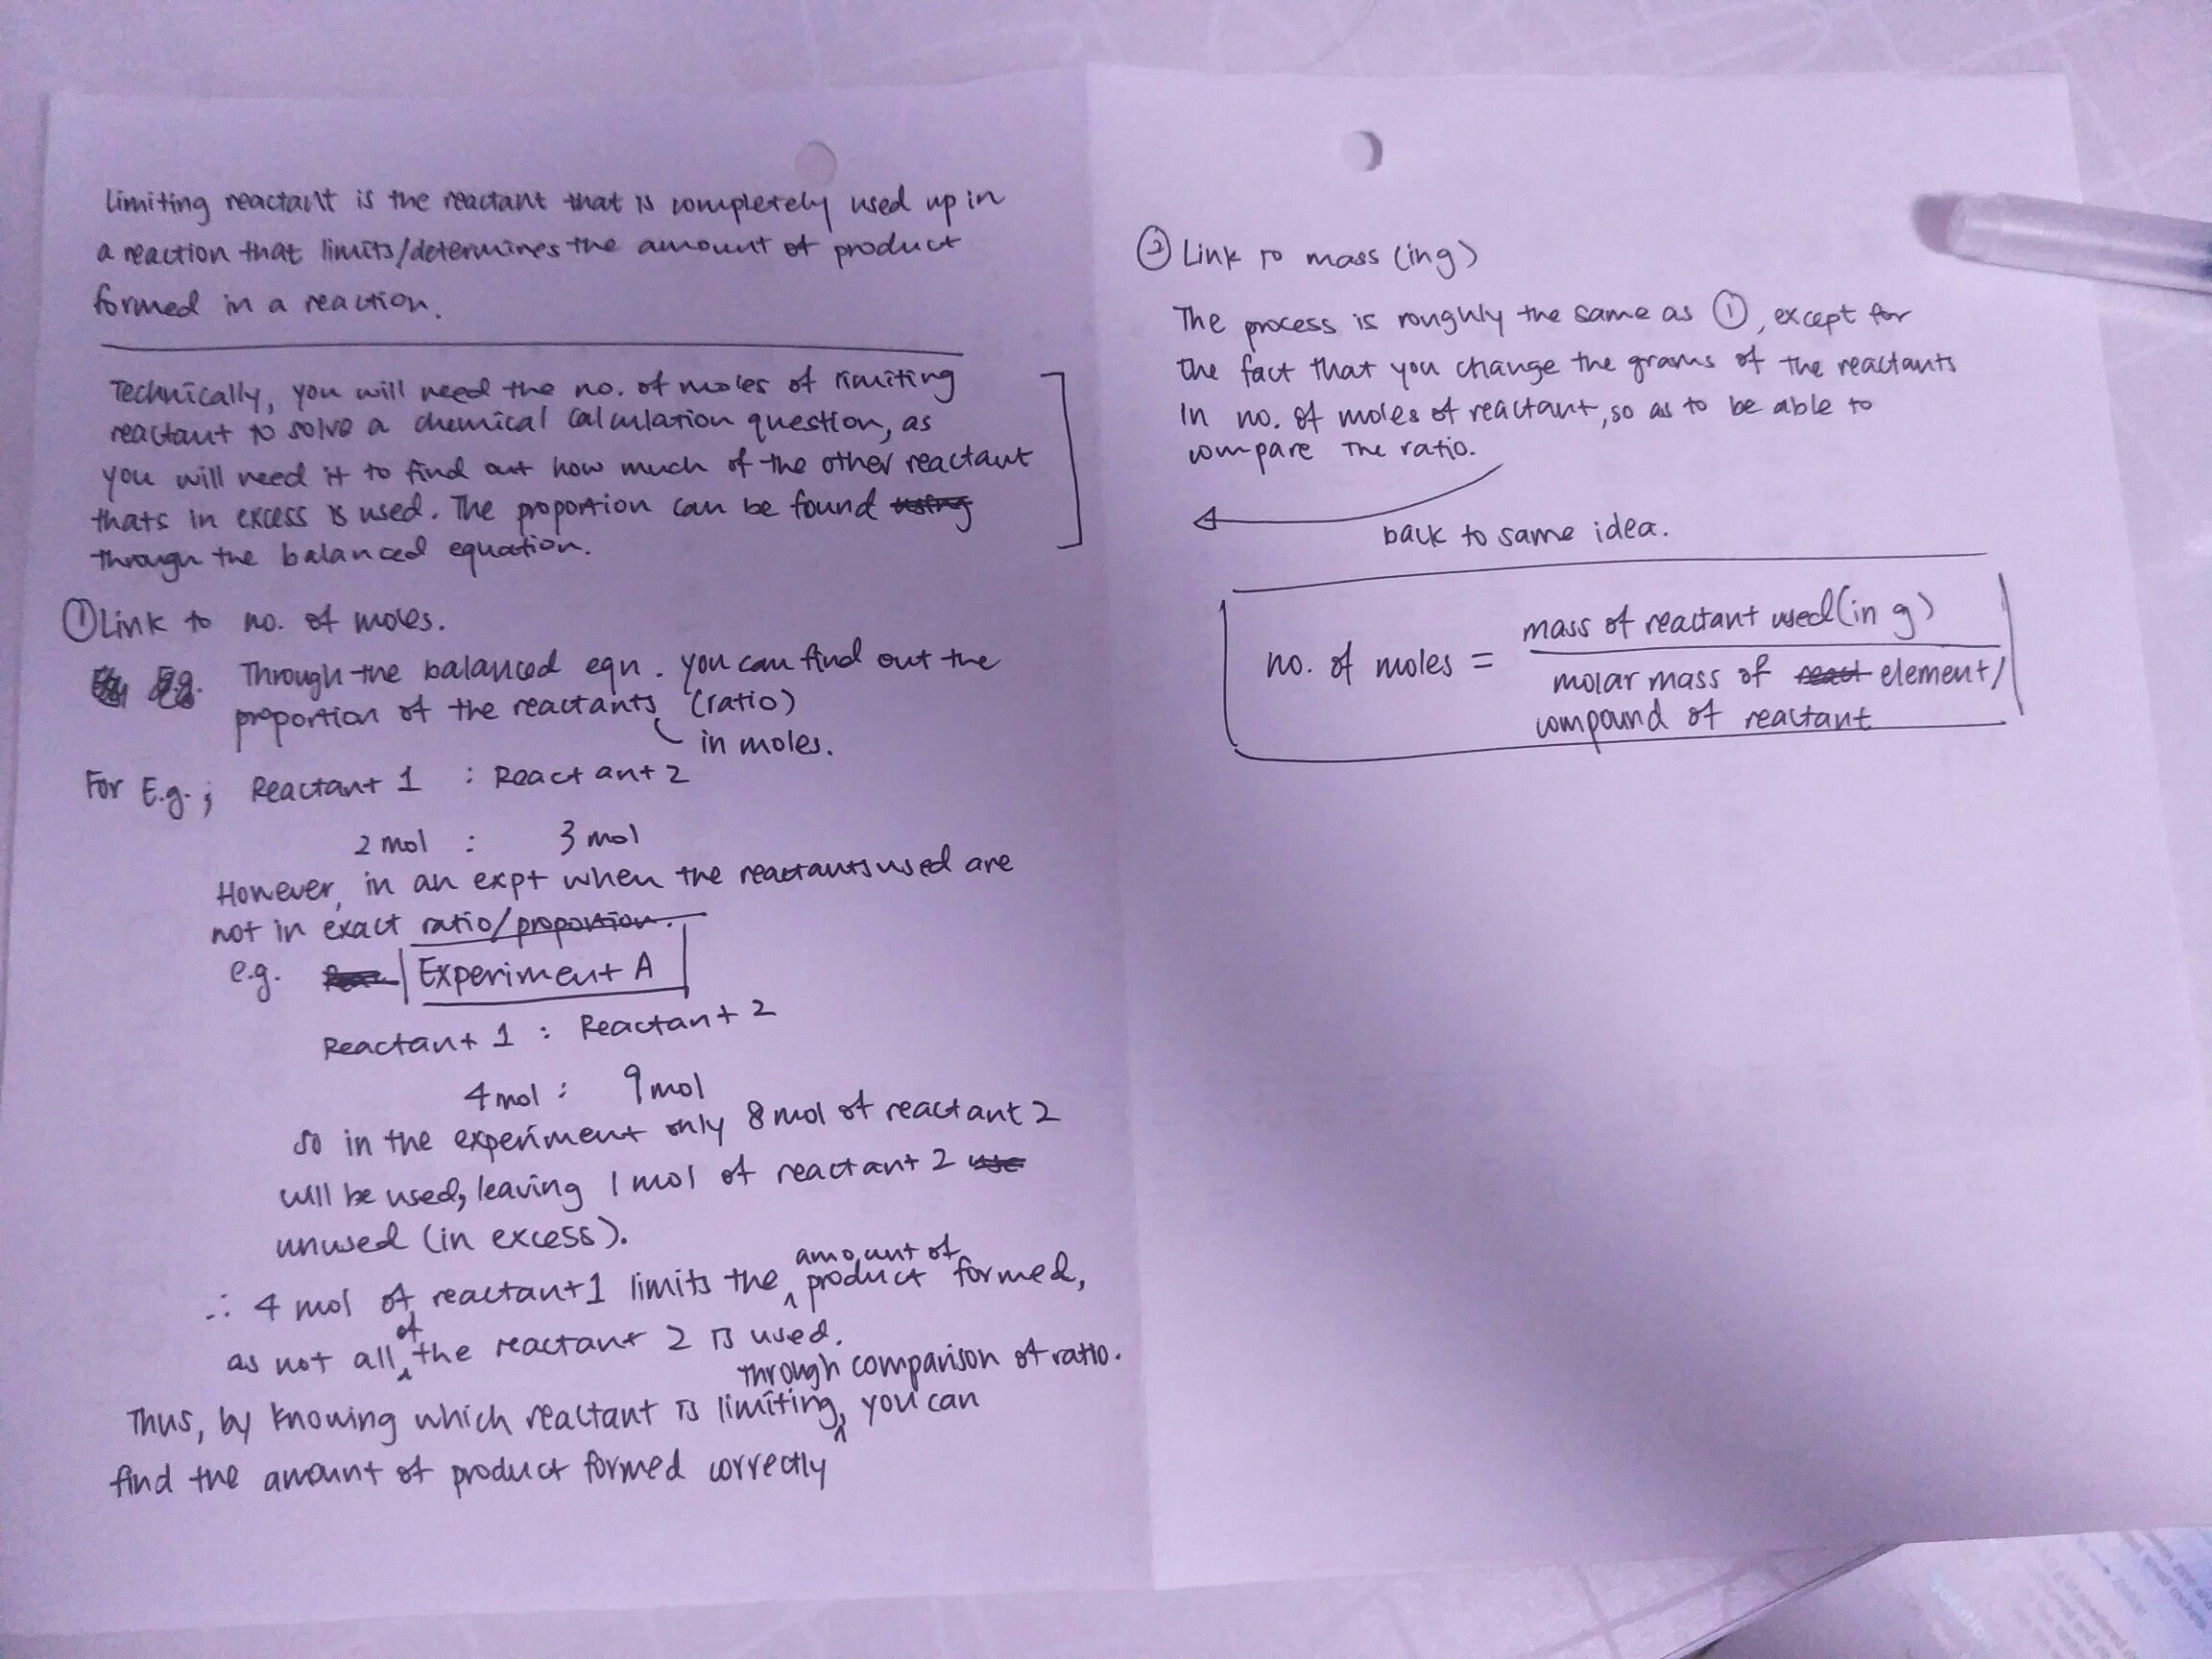 Limiting reactant is the reactant that is completely used up in
a reaction that limits/determines the amount of product
formed in a reaction.
Technically, you will need the no. of moles of limiting
reactant to solve a chemical calculation question, as
you will need it to find out how much of the other reactant
thats in excess is used. The proportion can be found using
through the balanced equation.
① Link to no. of moles.
E.g. Through the balanced eqn. you can find out the
proportion of the reactants (ratio)
in moles.
For E.g.; Reactant 1 : Reactant 2
2 mol : 3 mol
However, in an expt when the reactants used are
not in exact ratio/proportion.
e.g. Experiment A
Reactant 1 : Reactant 2
4 mol : 9 mol
so in the experiment only 8 mol of reactant 2
will be used, leaving 1 mol of reactant 2 use
unused (in excess).
∴ 4 mol of reactant 1 limits the amount of product formed,
as not all of the reactant 2 is used.
through comparison of ratio.
Thus, by knowing which reactant is limiting, you can
find the amount of product formed correctly
② Link to mass (in g)
The process is roughly the same as ①, except for
the fact that you change the grams of the reactants
in no. of moles of reactant, so as to be able to
compare the ratio.
back to same idea.
no. of moles = mass of reactant used (in g)
molar mass of react element/
compound of reactant